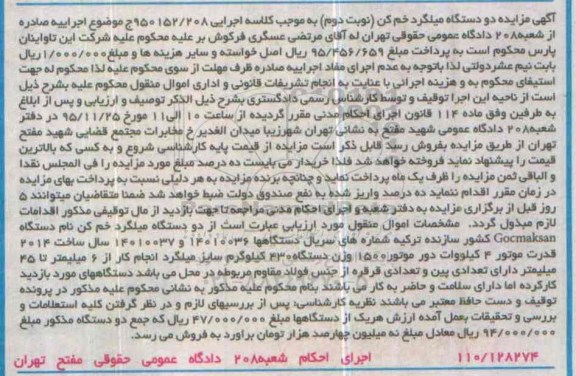 آگهی مزایده دو دستگاه میلگرد خم کن (نوبت دوم) به موجب کلاسه اجرایی ۹۵۰۱۵۲/۲۰۸ج موضوع اجراییه صادره
از شعبه۲۰۸ دادگاه عمومی حقوقی تهران له آقای مرتضی عسگری فرکوش بر علیه محکوم علیه شرکت این تاواینان
پارس محکوم است به پرداخت مبلغ ۹۵/۴۵۶/۶۵۹ ریال اصل خواسته و سایر هزینه ها و مبلغ۱/۰۰۰/۰۰۰ریال
بابت نیم عشردولتی لذا باتوجه به عدم اجرای مفاد اجراییه صادره ظرف مهلت از سوی محکوم علیه لذا محکوم له جهت
استیفای محکوم به و هزینه اجرائی با عنایت به انجام تشریفات قانونی و اداری اموال منقول محکوم علیه بشرح ذیل
است از ناحیه این اجرا توقیف و توسط کارشناس رسمی دادگستری بشرح ذیل الذکر توصیف و ارزیابی و پس از ابلاغ
به طرفین وفق ماده ۱۱۴ قانون اجرای احکام مدنی مقرر گردیده از ساعت ۱۰ الی۱۱ مورخ ۹۵/۱۱/۲۵ در دفتر
شعبه۲۰۸ دادگاه عمومی شهید مفتح به نشانی تهران شهرزیبا میدان الغدیر خ مخابرات مجتمع قضایی شهید مفتح
تهران از طریق مزایده بفروش رسد قابل ذکر است مزایده از قیمت پایه کارشناسی شروع و به کسی که بالاترین
قیمت را پیشنهاد نماید فروخته خواهد شد فلذا خریدار می بایست ده درصد مبلغ مورد مزایده را فی المجلس نقدا
و الباقی ثمن مزایده را ظرف یک ماه پرداخت نماید و چنانچه برنده مزایده به هر دلیلی نسبت به پرداخت بهای مزایده
در زمان مقرر اقدام ننماید ده درصد واریز شده به نفع صندوق دولت ضبط خواهد شد ضمنا متقاضیان میتوانند ۵
روز قبل از برگزاری مزایده به دفتر شعبه و اجرای احکام مدنی مراجعه تا جهت بازدید از مال توقیفی مذکور اقدامات
لازم مبذول گردد. مشخصات اموال منقول مورد ارزیابی عبارت است از دو دستگاه میلگرد خم کن نام دستگاه
Gocmaksan کشور سازنده ترکیه شماره های سریال دستگاهها ۱۴۰۱۰۰۳۶ و ۱۴۰۱۰۰۳۷ سال ساخت ۲۰۱۴
قدرت موتور ۴ کیلووات دور موتور۱۵۰۰ وزن دستگاه۴۳۰ کیلوگرم سایز میلگرد انجام کار از ۶ میلیمتر تا ۴۵
میلیمتر دارای تعدادی پین و تعدادی قرقره از جنس فولاد مقاوم مربوطه در محل می باشد دستگاههای مورد بازدید
کارکرده اما دارای سلامت و حاضر به کار می باشند بنام محکوم علیه مذکور به نشانی محکوم علیه مذکور در پرونده
توقیف و دست حافظ معتبر می باشند نظریه کارشناسی: پس از بررسیهای لازم و در نظر گرفتن کلیه استعلامات و
بررسی و تحقیقات بعمل آمده ارزش هریک از دستگاهها مبلغ ۴۷/۰۰۰/۰۰۰ ریال که جمع دو دستگاه مذکور مبلغ
۹۴/۰۰۰/۰۰۰ ریال معادل مبلغ نه میلیون چهارصد هزار تومان براورد به فروش می رسد.
۱۱۰/۱۲۸۲۷۴ اجرای احکام شعبه۲۰۸ دادگاه عمومی حقوقی مفتح تهران